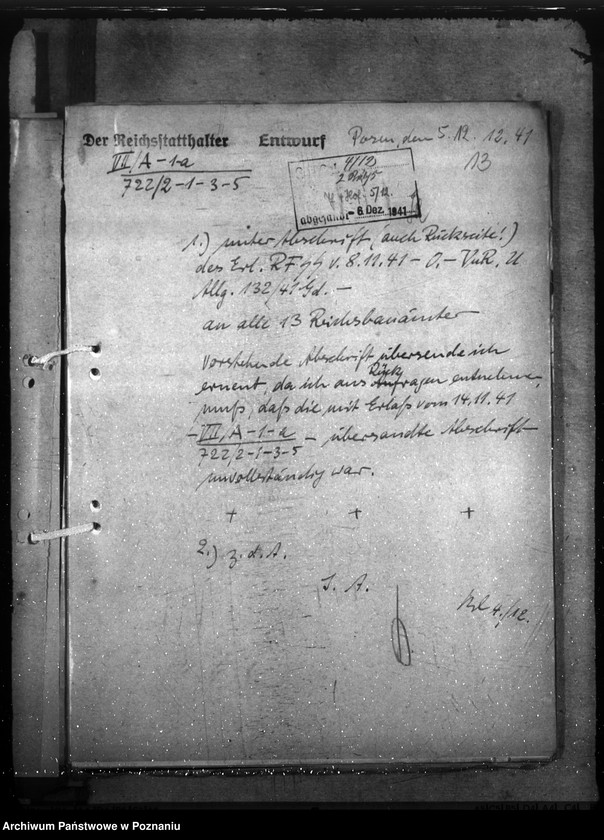 Der Reichsstatthalter Entwurf Posen, den 5. 12. 41
VII/A-1-a
722/2-1-3-5
13
4/12
5/12.
abgesandt - 6. Dez. 1941
1.) unter Abschrift (auch Rückseite!)
des Erl. RFSS v. 8.11.41 - O.-VuR. II
Allg. 132/41 Gd. -
an alle 13 Reichsbauämter
Vorstehende Abschrift übersende ich
erneut, da ich aus Rückfragen entnehmen
muß, daß die mit Erlaß vom 14.11.41
- VII/A-1-a
722/2-1-3-5 - übersandte Abschrift
unvollständig war.
+ + +
2.) z. d. A.
I. A.
4./12.
Archiwum Państwowe w Poznaniu